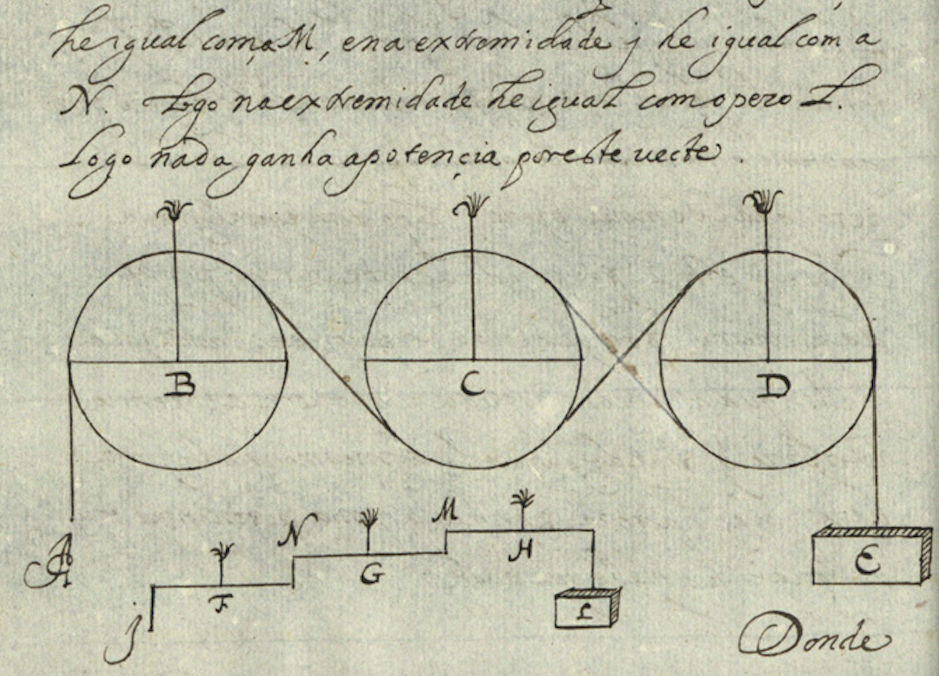 he igual com a M, e na extremidade j he igual com a
N. Logo na extremidade he igual com o pezo L.
Logo nada ganha a potencia por este vecte
B C D
A N M E
F G H L
j
Donde